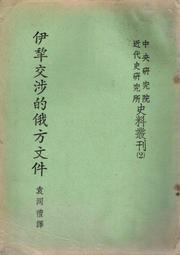 中央研究院
近代史研究所
史料叢刊(2)
伊犁交涉的俄方文件
袁同禮譯